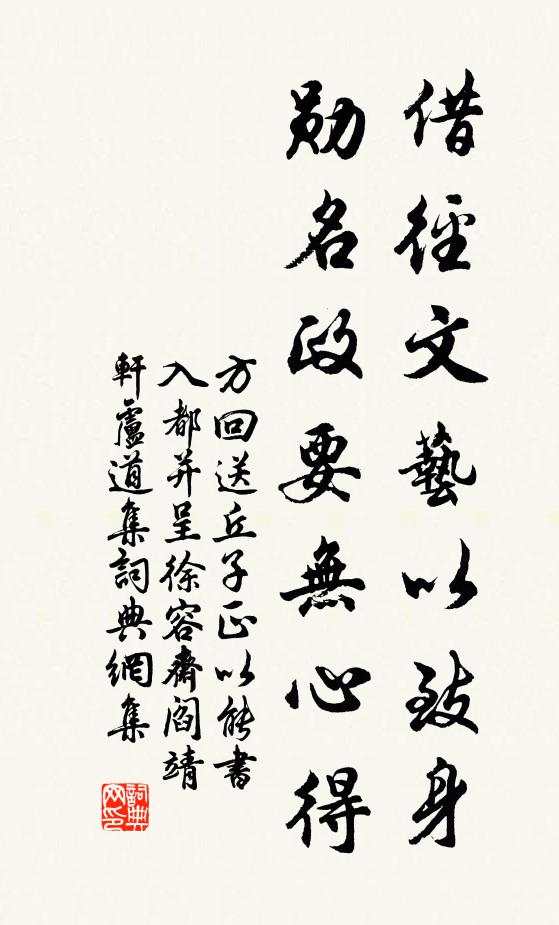 借徑文藝以致身
勛名政要無心得
方回送丘子正以能書
入都并呈徐容齋閻靖
軒盧道集詞典網集
詞典网印